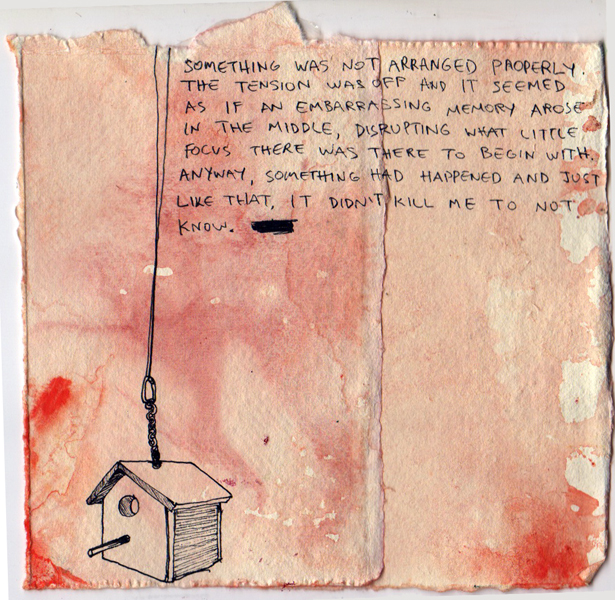 SOMETHING WAS NOT ARRANGED PROPERLY.
THE TENSION WAS OFF AND IT SEEMED
AS IF AN EMBARRASSING MEMORY AROSE
IN THE MIDDLE, DISRUPTING WHAT LITTLE
FOCUS THERE WAS THERE TO BEGIN WITH.
ANYWAY, SOMETHING HAD HAPPENED AND JUST
LIKE THAT, IT DIDN'T KILL ME TO NOT
KNOW.